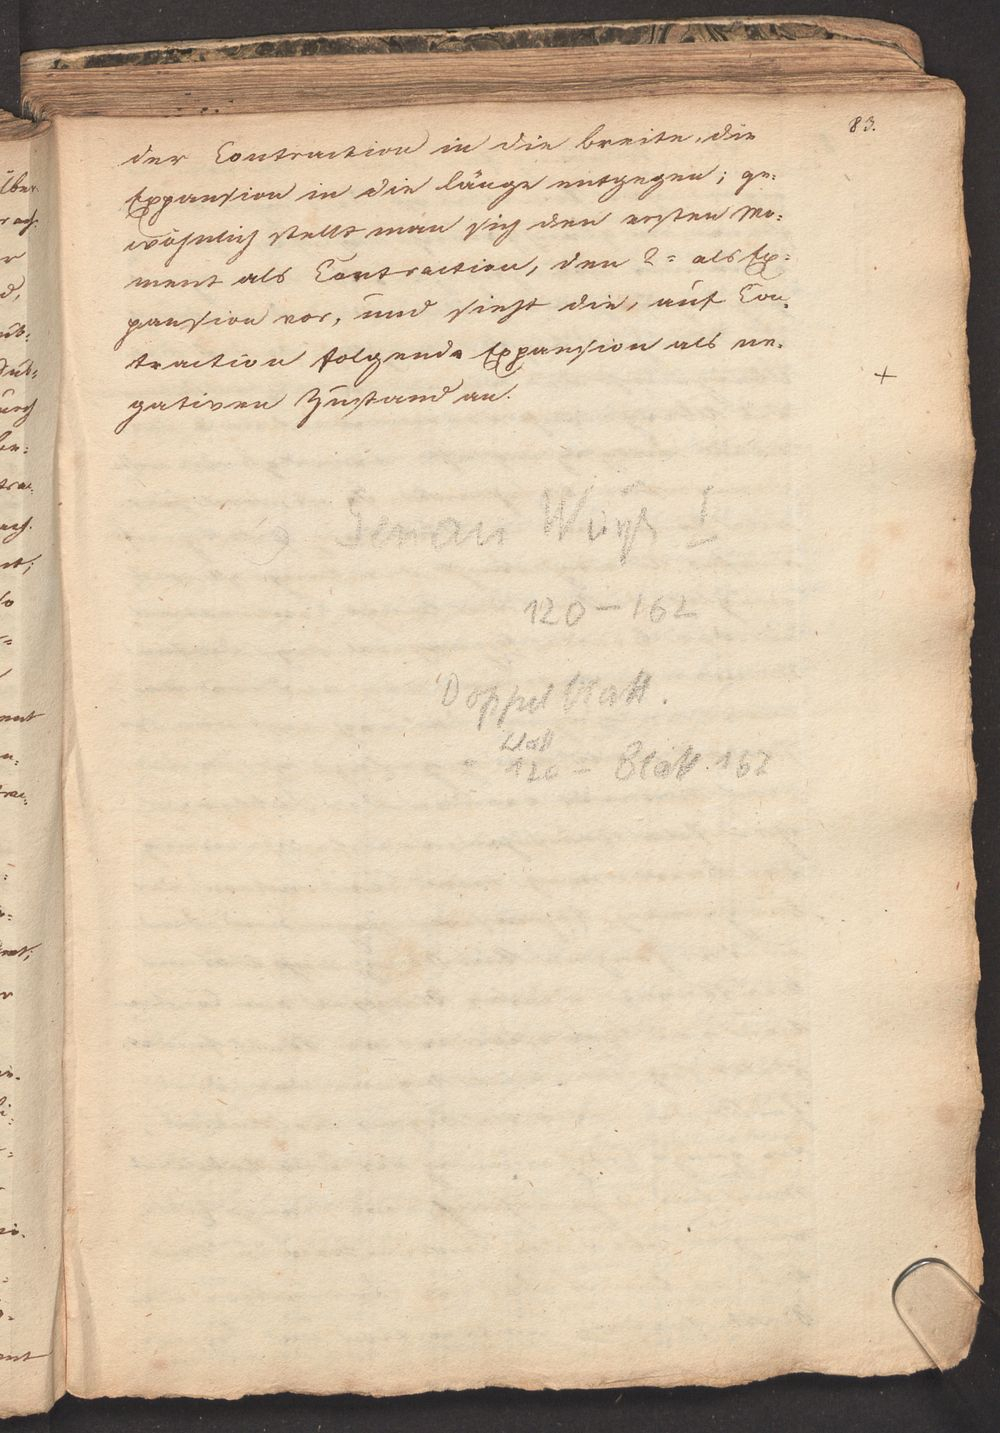 83.
der Contraction in die breite, die
Expansion in die länge entgegen; ge=
wöhnlich stellt man sich den ersten Mo=
ment als Contraction, den 2= als Ex=
pansion vor, und sieht die, auf Con=
traction folgende Expansion als ne=
gativen Zustand an.
+
120 – 162
Doppelblatt.
Blatt
120 – Blatt 162